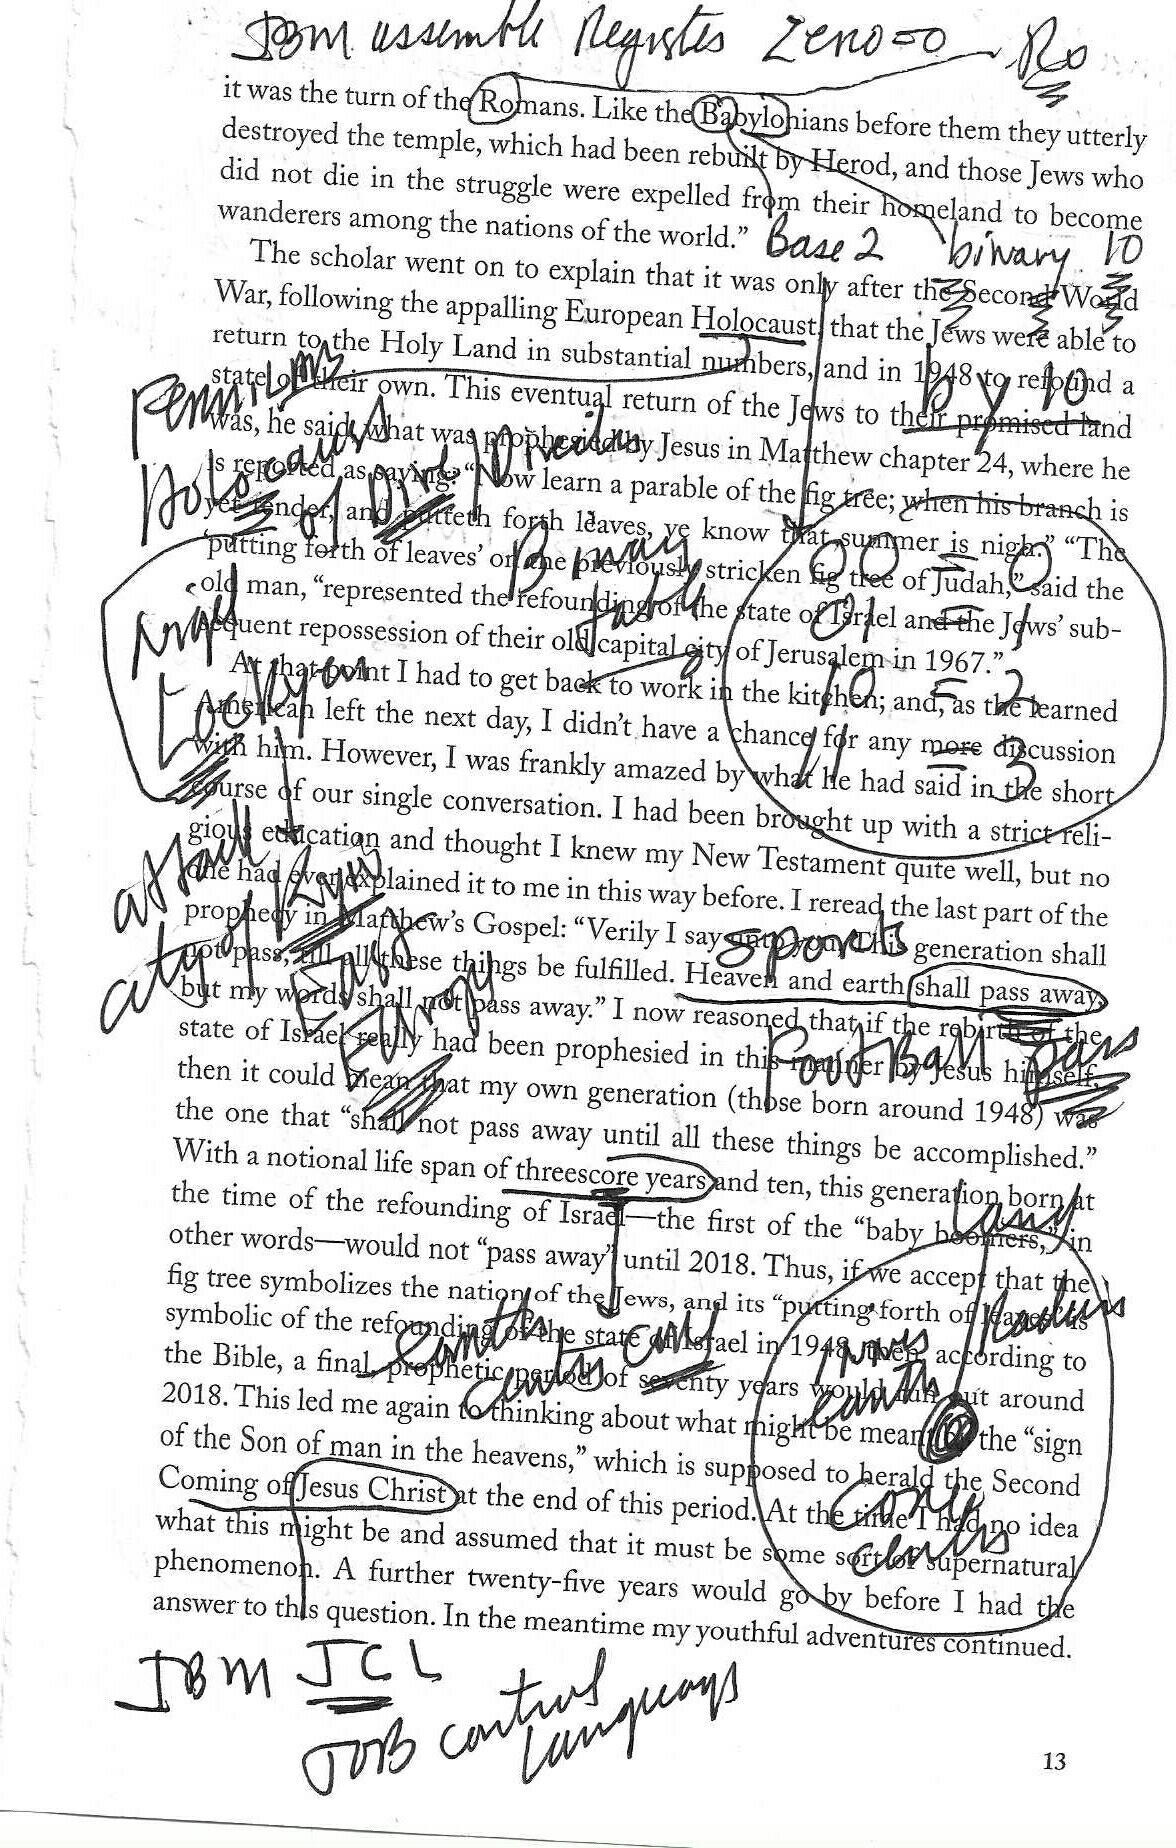 IBM assemble Register Zero = 0 R0
it was the turn of the Romans. Like the Babylonians before them they utterly
destroyed the temple, which had been rebuilt by Herod, and those Jews who
did not die in the struggle were expelled from their homeland to become
wanderers among the nations of the world.”
Base 2 binary 10
The scholar went on to explain that it was only after the Second World
War, following the appalling European Holocaust, that the Jews were able to
return to the Holy Land in substantial numbers, and in 1948 to refound a
by 10
state of their own. This eventual return of the Jews to their promised land
was, he said, what was prophesied by Jesus in Matthew chapter 24, where he
Holocaust of
is reported as saying: “Now learn a parable of the fig tree; when his branch is
yet tender, and putteth forth leaves, ye know that summer is nigh.” “The
Binary table
00 = 0
01 = 1
10 = 2
11 = 3
‘putting forth of leaves’ on the previously stricken fig tree of Judah,” said the
old man, “represented the refounding of the state of Israel and the Jews’ sub-
sequent repossession of their old capital city of Jerusalem in 1967.”
Israel
At that point I had to get back to work in the kitchen; and, as the learned
American left the next day, I didn’t have a chance for any more discussion
with him. However, I was frankly amazed by what he had said in the short
course of our single conversation. I had been brought up with a strict reli-
gious education and thought I knew my New Testament quite well, but no
one had ever explained it to me in this way before. I reread the last part of the
attack
city of
prophecy in Matthew’s Gospel: “Verily I say unto you, This generation shall
sports
not pass, till all these things be fulfilled. Heaven and earth shall pass away,
but my words shall not pass away.” I now reasoned that if the rebirth of the
FootBall pass
state of Israel really had been prophesied in this manner by Jesus himself,
then it could mean that my own generation (those born around 1948) was
the one that “shall not pass away until all these things be accomplished.”
With a notional life span of threescore years and ten, this generation born at
the time of the refounding of Israel—the first of the “baby boomers,” in
other words—would not “pass away” until 2018. Thus, if we accept that the
Radius
fig tree symbolizes the nation of the Jews, and its “putting forth of leaves” is
symbolic of the refounding of the state of Israel in 1948, then, according to
earths center core
the Bible, a final, prophetic period of seventy years would run out around
earth
2018. This led me again to thinking about what might be meant by the “sign
of the Son of man in the heavens,” which is supposed to herald the Second
Coming of Jesus Christ at the end of this period. At the time I had no idea
core
what this might be and assumed that it must be some sort of supernatural
phenomenon. A further twenty-five years would go by before I had the
answer to this question. In the meantime my youthful adventures continued.
IBM JCL
JOB control
language
13